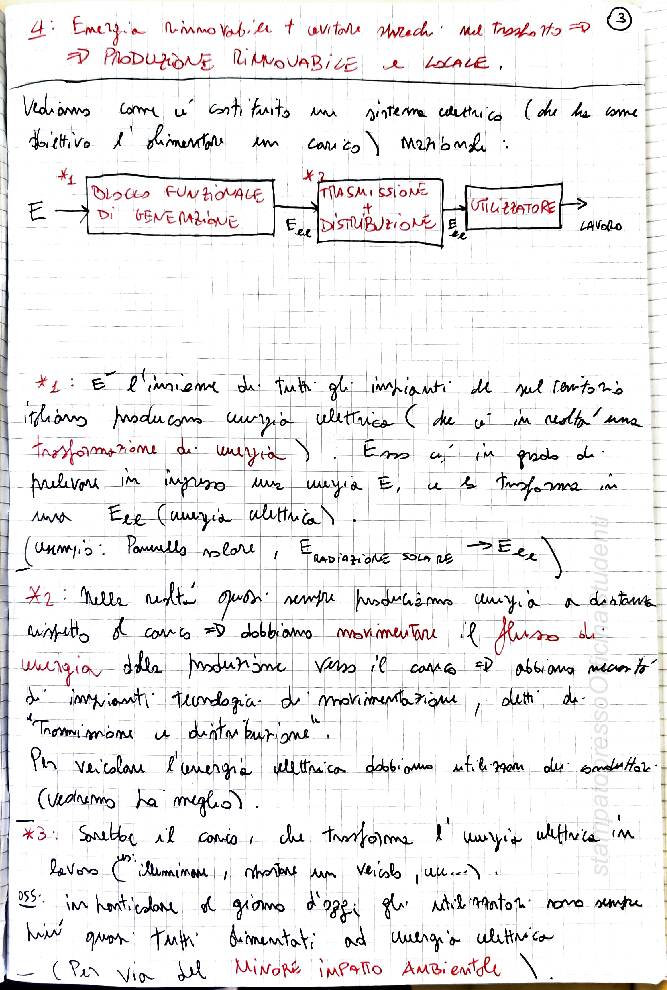 4: Energia rinnovabile + evitare sprechi nel trasporto ⇒ 3
⇒ PRODUZIONE RINNOVABILE e LOCALE.
Vediamo come é costituito un sistema elettrico (che ha come
obiettivo l'alimentare un carico) nazionale :
*1 *2
E → BLOCCO FUNZIONALE DI GENERAZIONE → Eee TRASMISSIONE + DISTRIBUZIONE → Eee UTILIZZATORE → LAVORO
*1: E' l'insieme di tutti gli impianti che sul territorio
italiano producono energia elettrica (che é in realtá una
trasformazione di energia). Esso é in grado di
prelevare in ingresso una energia E, e la trasforma in
una Eee (energia elettrica).
(esempio: Pannello solare, E RADIAZIONE SOLARE → Eee)
*2: Nella realtá quasi sempre produciamo energia a distanza
rispetto al carico ⇒ dobbiamo movimentare il flusso di
energia dalla produzione verso il carico ⇒ abbiamo necessitá
di impianti tecnologia di movimentazione, detti di
"Trasmissione e distribuzione".
Per veicolare l'energia elettrica dobbiamo utilizzare dei conduttori
(vedremo tra meglio).
*3: Sarebbe il carico, che trasforma l'energia elettrica in
lavoro (es: illuminare, spostare un veicolo, ecc...).
OSS: in particolare al giorno d'oggi gli utilizzatori sono sempre
piú quasi tutti alimentati ad energia elettrica
– (Per via del MINORE IMPATTO AMBIENTALE).
stampato presso Officina studenti